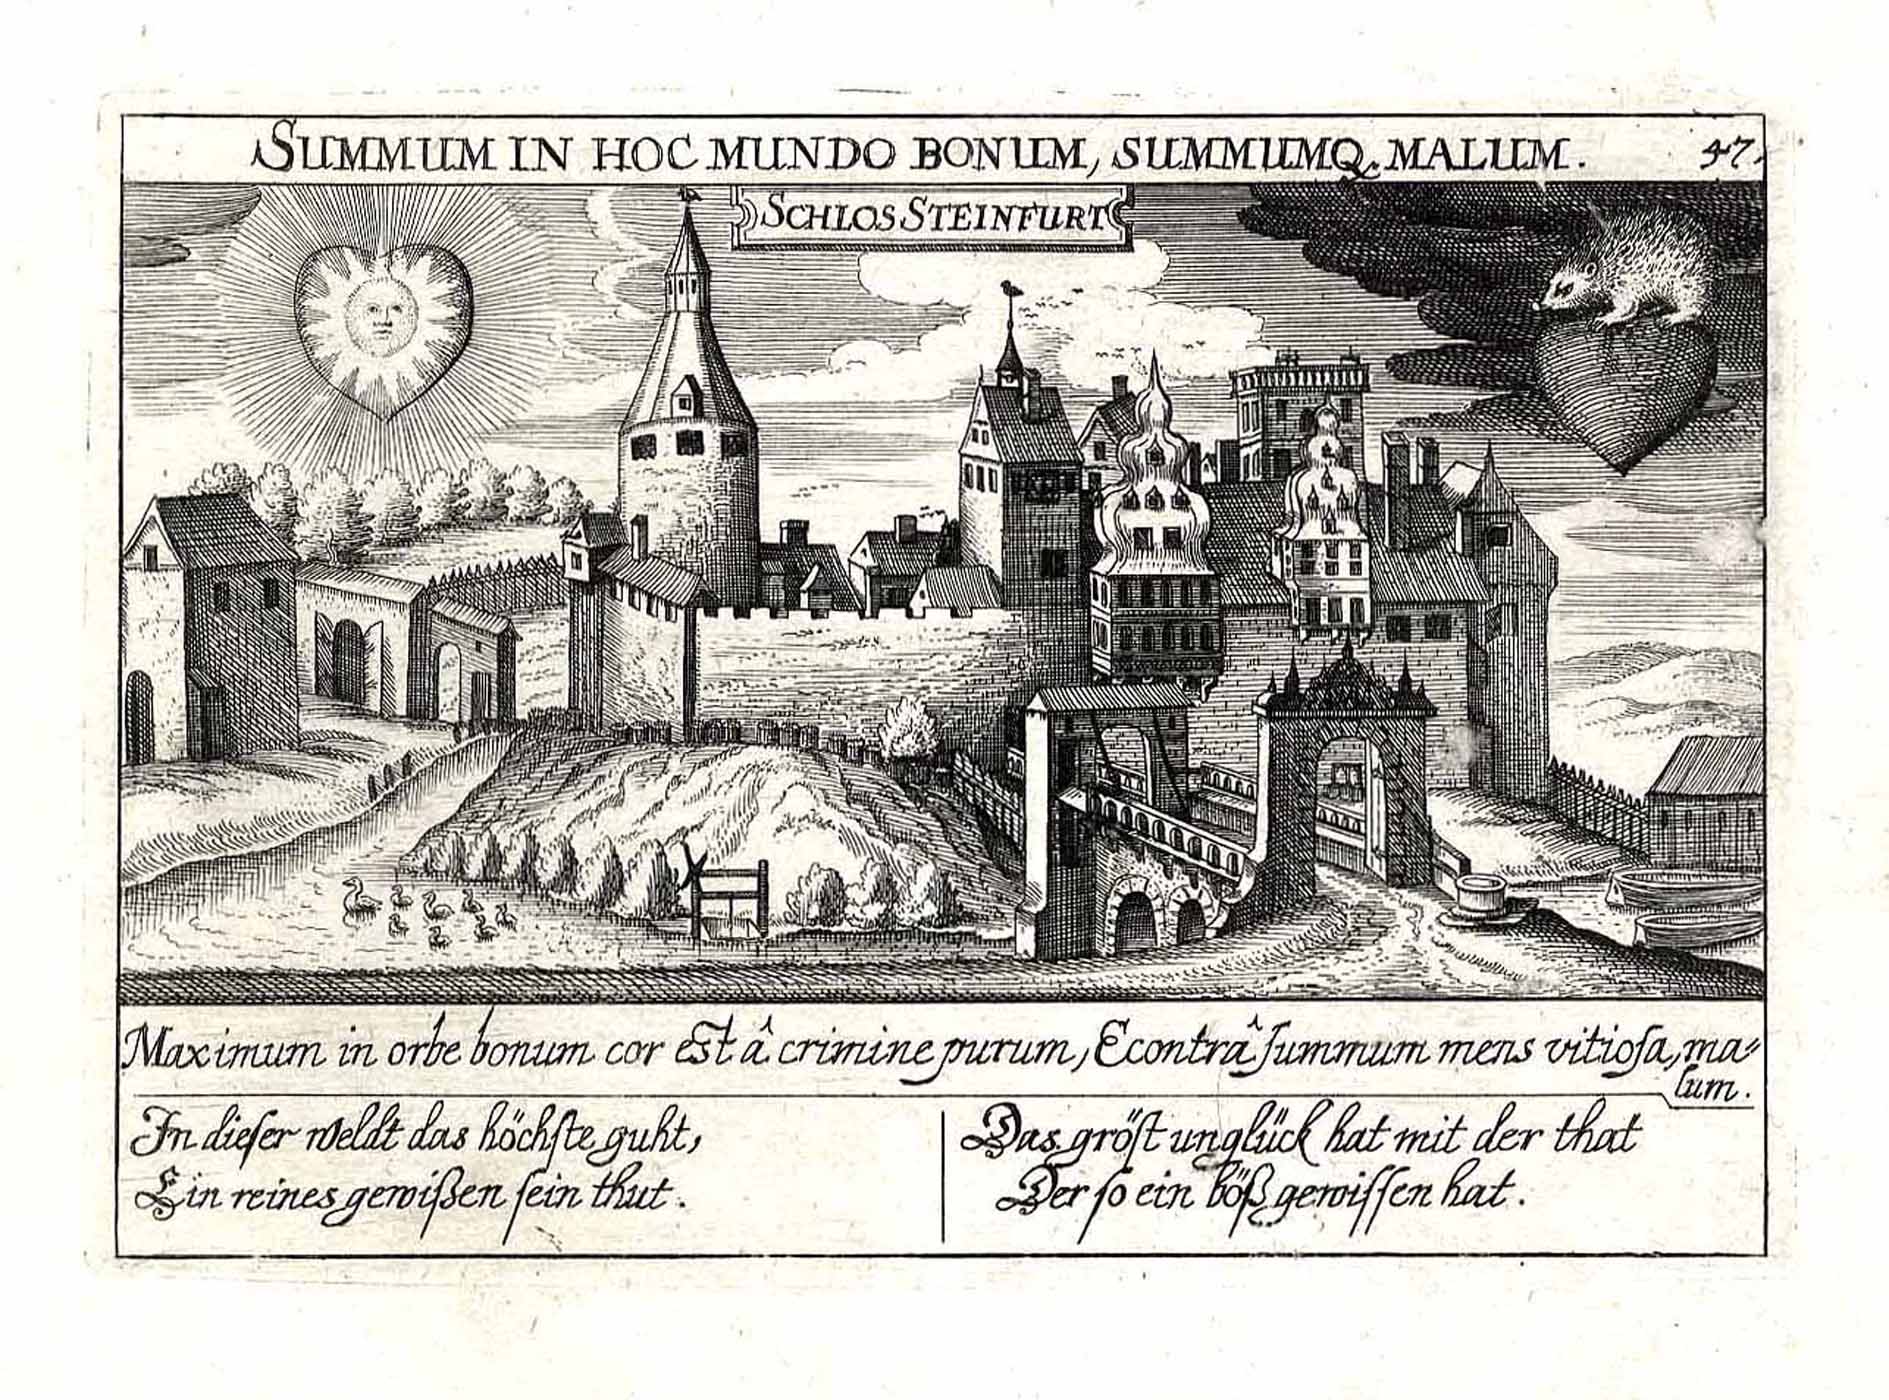 SUMMUM IN HOC MUNDO BONUM, SUMMUMQ. MALUM. 47.
SCHLOS STEINFURT
Maximum in orbe bonum cor est â crimine purum, Econtrâ ſummum mens vitioſa, ma⸗
lum.
In dieſer weldt das höchſte guht,
Ein reines gewißen ſein thut.
Das gröſt unglück hat mit der that
Der ſo ein böß gewiſſen hat.